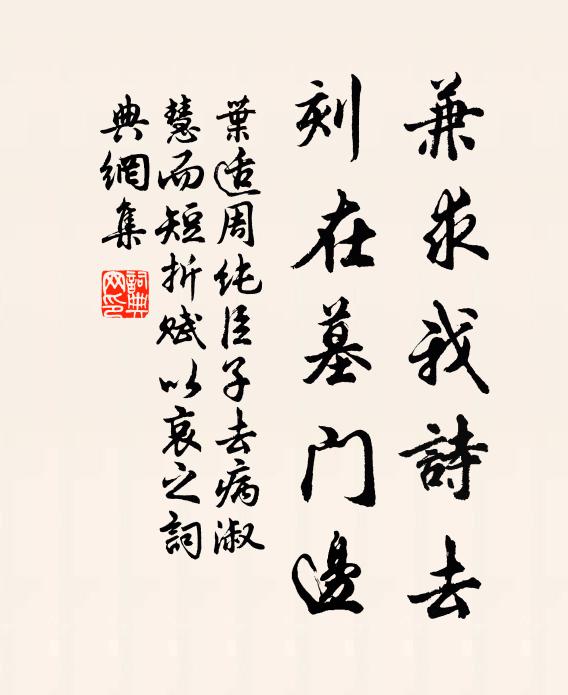 兼求我詩去
刻在墓門邊
葉适周純臣子去病淑
慧而短折賦以哀之詞
典網集
詞典網印